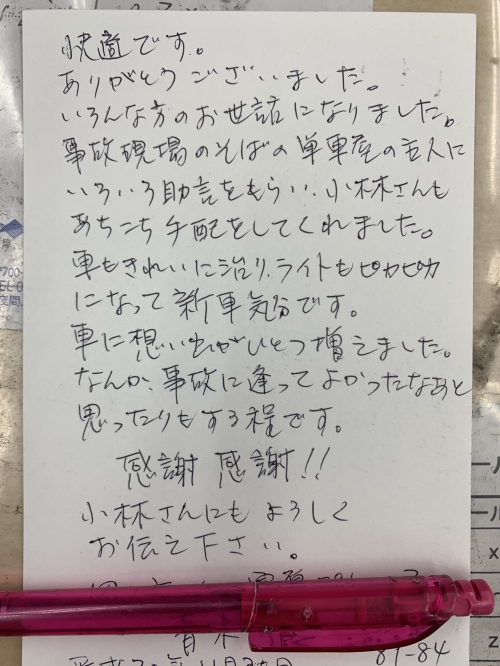 快適です。
ありがとうございました。
いろんな方のお世話になりました。
事故現場のそばの単車屋の主人に
いろいろ助言をもらい、小林さんも
あちこち手配をしてくれました。
車もきれいに治り、ライトもピカピカ
になって新車気分です。
車に想い出がひとつ増えました。
なんか、事故に逢ってよかったなあと
思ったりもする程です。
感謝 感謝!!
小林さんにもよろしく
お伝え下さい。
81-84